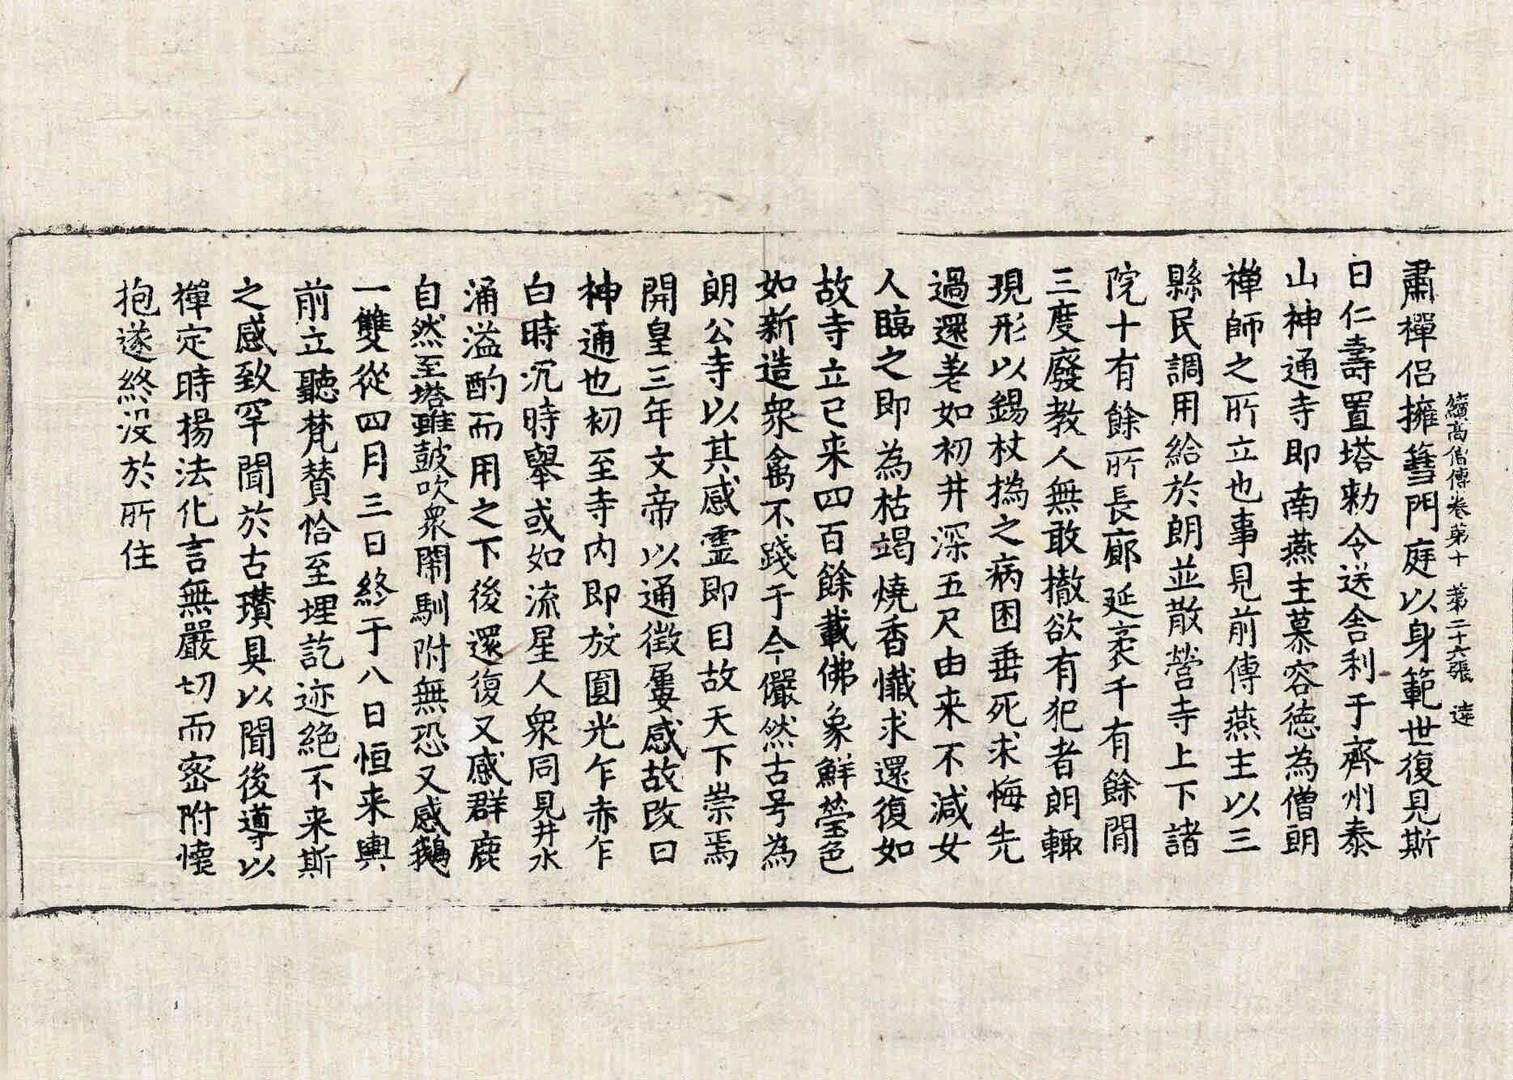 續高僧傳卷第十 第二十六張 達
肅禪侶擁篲門庭以身範世復見斯
日仁壽置塔勑令送舍利于齊州泰
山神通寺即南燕主慕容德為僧朗
禪師之所立也事見前傳燕主以三
縣民調用給於朗並散營寺上下諸
院十有餘所長廊延袤千有餘間
三度廢教人無敢撤欲有犯者朗輙
現形以錫杖撝之病困垂死求悔先
過還差如初井深五尺由来不減女
人臨之即為枯竭燒香懺求還復如
故寺立已来四百餘載佛象鮮瑩色
如新造衆禽不踐于今儼然古号為
朗公寺以其感霊即目故天下崇焉
開皇三年文帝以通徴屢感故改曰
神通也初至寺内即放圓光乍赤乍
白時沉時舉或如流星人衆同見井水
涌溢酌而用之下後還復又感群鹿
自然至塔雖鼓吹衆閙馴附無恐又感鵝
一雙從四月三日終于八日恒来輿
前立聽梵賛恰至埋訖迹絶不来斯
之感致罕聞於古瓚具以聞後導以
禪定時楊法化言無嚴切而密附懷
抱遂終没於所住